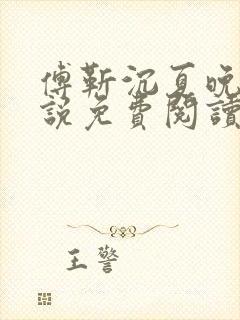 傅靳沉夏晚
說免費閱讀
王警